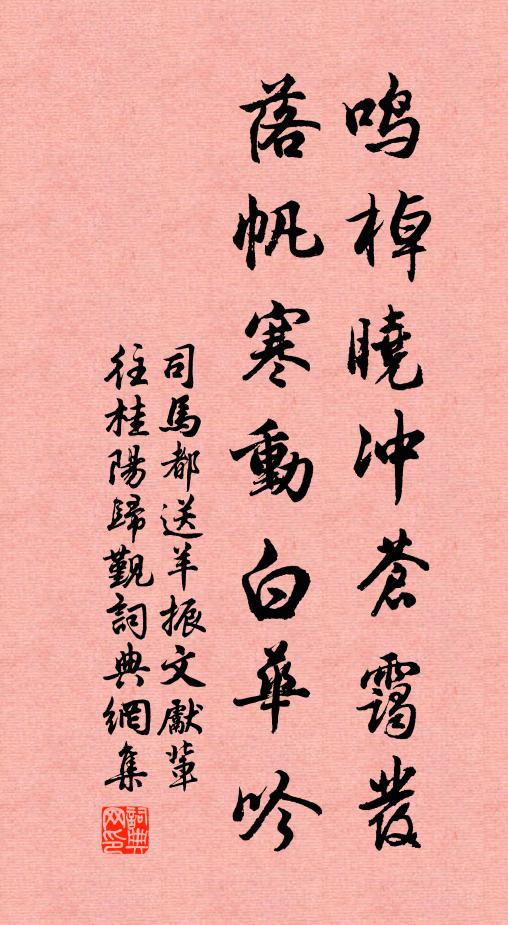 鳴棹曉沖蒼靄發
落帆寒動白華吟
司馬都送羊振文獻輩
往桂陽歸覲詞典網集
詞典網印